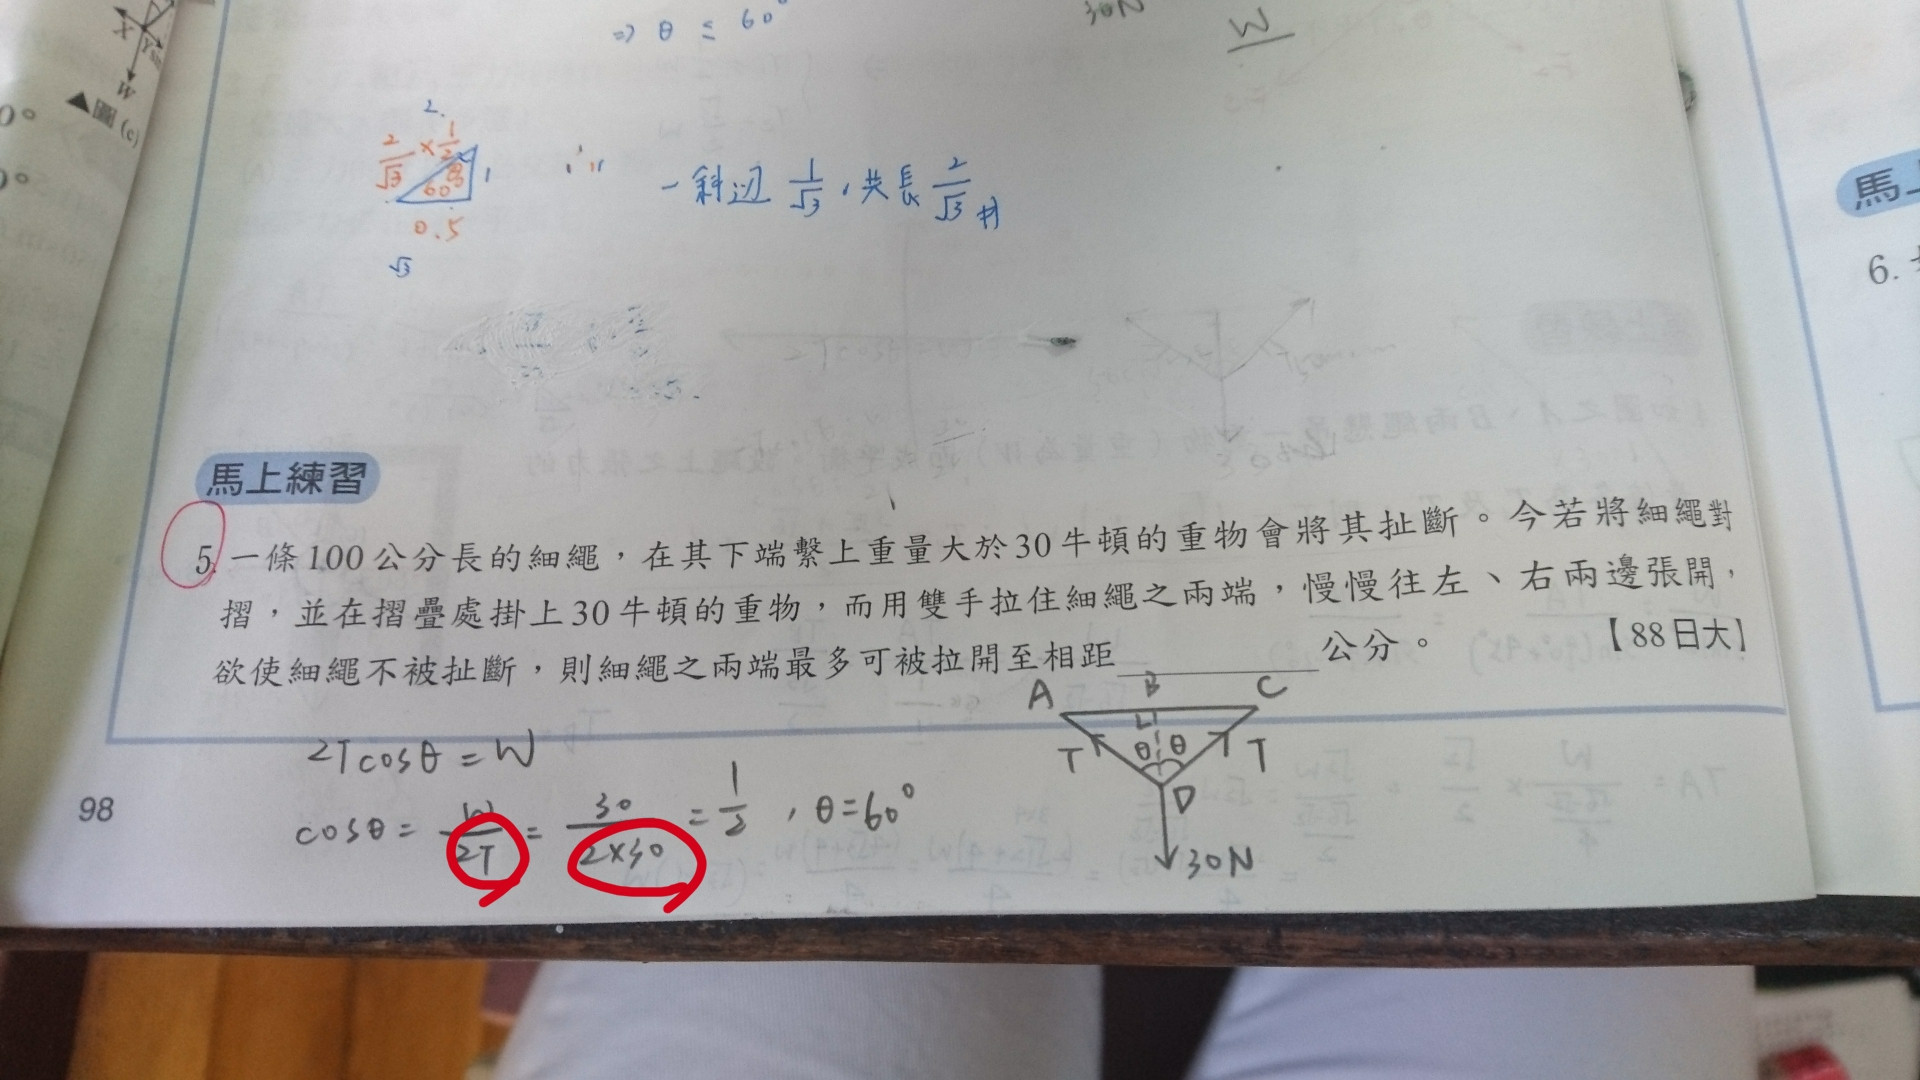 ⇒ θ ≤ 60°
30N
W
X
W
▲圖(c)
0°
0°
2
2/√3 × 1/2
60°
1
0.5
√3
一斜边 1/√3,共長 2/√3 #
馬上練習
5. 一條100公分長的細繩,在其下端繫上重量大於30牛頓的重物會將其扯斷。今若將細繩對
摺,並在摺疊處掛上30牛頓的重物,而用雙手拉住細繩之兩端,慢慢往左、右兩邊張開,
欲使細繩不被扯斷,則細繩之兩端最多可被拉開至相距________公分。 【88日大】
A B C
T θ θ T
D
30N
2Tcosθ = W
cosθ = W/2T = 30/2×30 = 1/2 , θ=60°
98
馬上
6.